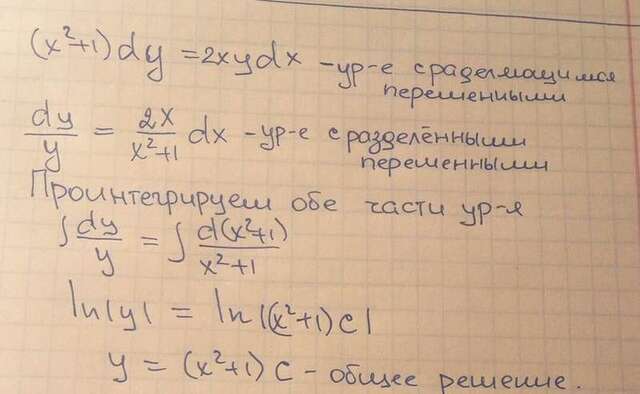 (x²+1)dy = 2xydx - ур-е с разделяющимися
переменными
dy/y = 2x/(x²+1) dx - ур-е с разделёнными
переменными
Проинтегрируем обе части ур-я
∫ dy/y = ∫ d(x²+1)/(x²+1)
ln|y| = ln|(x²+1)C|
y = (x²+1)C - общее решение.